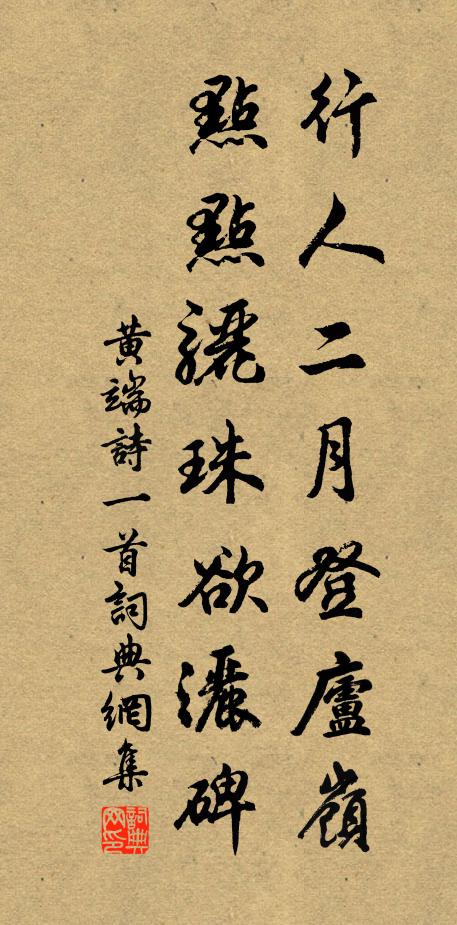 行人二月登廬嶺
點點驪珠欲灑碑
黃端詩一首詞典網集
詞典网印